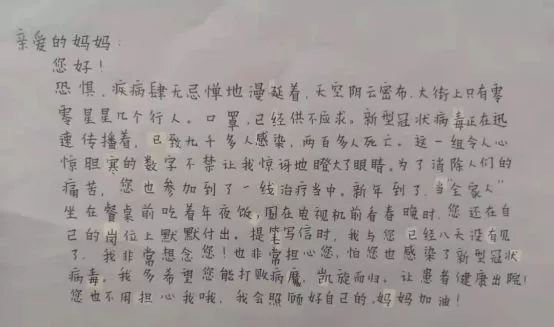 亲爱的妈妈:
您好!
恐惧、疾病肆无忌惮地漫延着,天空阴云密布,大街上只有零
零星星几个行人。口罩,已经供不应求。新型冠状病毒正在迅
速传播着,已致九千多人感染,两百多人死亡。这一组令人心
惊胆寒的数字不禁让我惊讶地瞪大了眼睛。为了消除人们的
痛苦,您也参加到了一线治疗当中。新年到了,当“全家人”
坐在餐桌前吃着年夜饭,围在电视机前看春晚时,您还在自
己的岗位上默默付出。提笔写信时,我与您已经八天没有见
了,我非常想念您!也非常担心您,怕您也感染了新型冠状
病毒。我多希望您能打败病魔,凯旋而归,让患者健康出院!
您也不用担心我哦,我会照顾好自己的,妈妈加油!